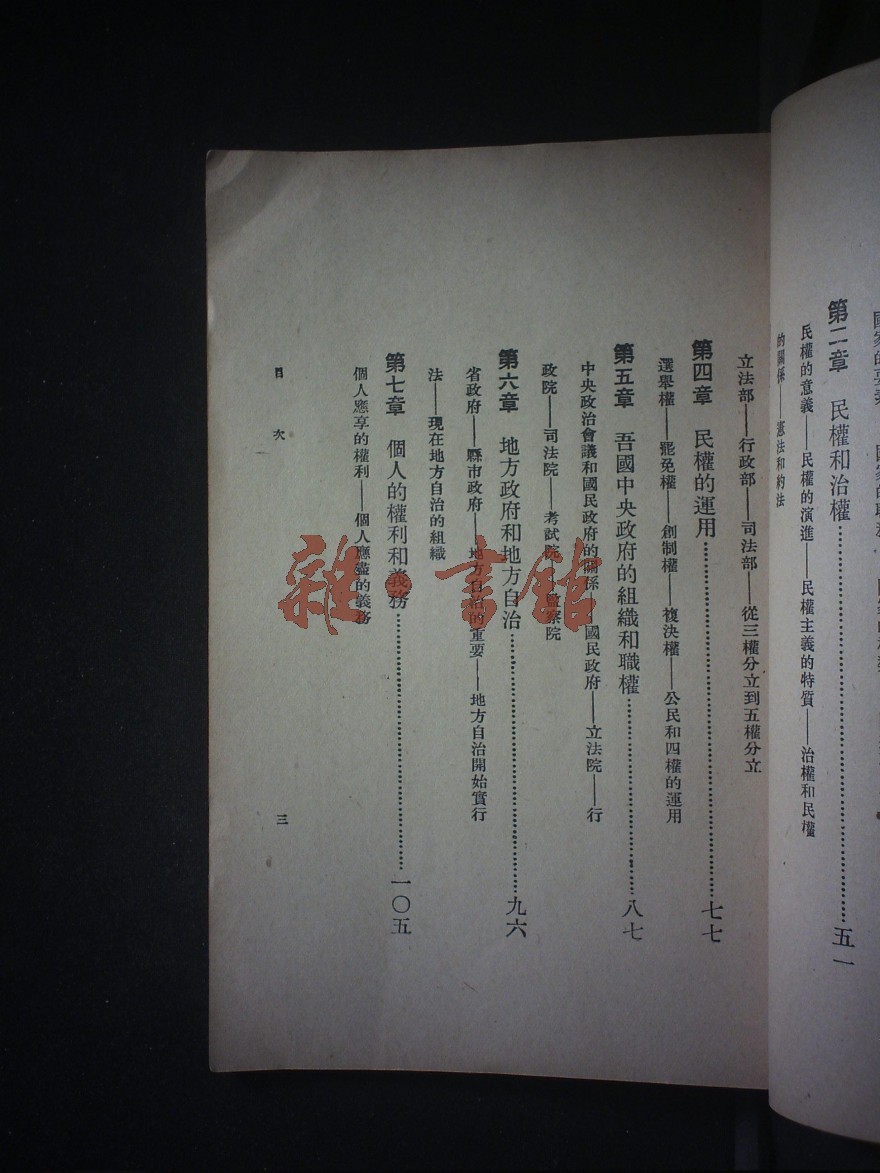 第二章　民權和治權……五一
民權的意義——民權的演進——民權主義的特質——治權和民權
的關係——憲法和約法
立法部——行政部——司法部——從三權分立到五權分立
第四章　民權的運用……七七
選舉權——罷免權——創制權——複決權——公民和四權的運用
第五章　吾國中央政府的組織和職權……八七
中央政治會議和國民政府的關係——國民政府——立法院——行
政院——司法院——考試院——監察院
第六章　地方政府和地方自治……九六
省政府——縣市政府——地方自治的重要——地方自治開始實行
法——現在地方自治的組織
第七章　個人的權利和義務……一〇五
個人應享的權利——個人應盡的義務
目次
三
雜·言鈷